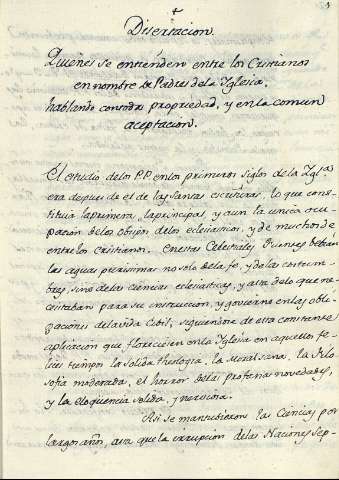 Disertacion.
Quienes se entienden entre los Cristianos
en nombre de Padres de la Iglesia,
hablando con toda propriedad, y en la comun
aceptacion.
El estudio de los P.P. en los primeros siglos de la Igl.ª
era depues de el de las santas escrituras, lo que cons-
tituia la primera, la principal, y aun la unica ocu-
pacion de los Obispos de los eclesiasticos, y de muchos de
entre los cristianos. En estas Celestiales Fuentes bebian
las aguas purissimas no solo de la fe, y de las costum-
bres, sino de las ciencias eclesiasticas, y asta de lo que ne-
cesitaban para su instruccion, y govierno en las obli-
gaciones de la vida Civil, siguiendose de esta constante
aplicacion que floreciesen en la Iglesia en aquellos fe-
lices tiempos la solida theologia, la Moral sana, la Filo
sofia moderada, el horror de las profanas novedades,
y la eloquencia solida, y nerviosa.
Asi se mantubieron las Ciencias por
largos años, asta que la irrupcion de las Naciones Sep-